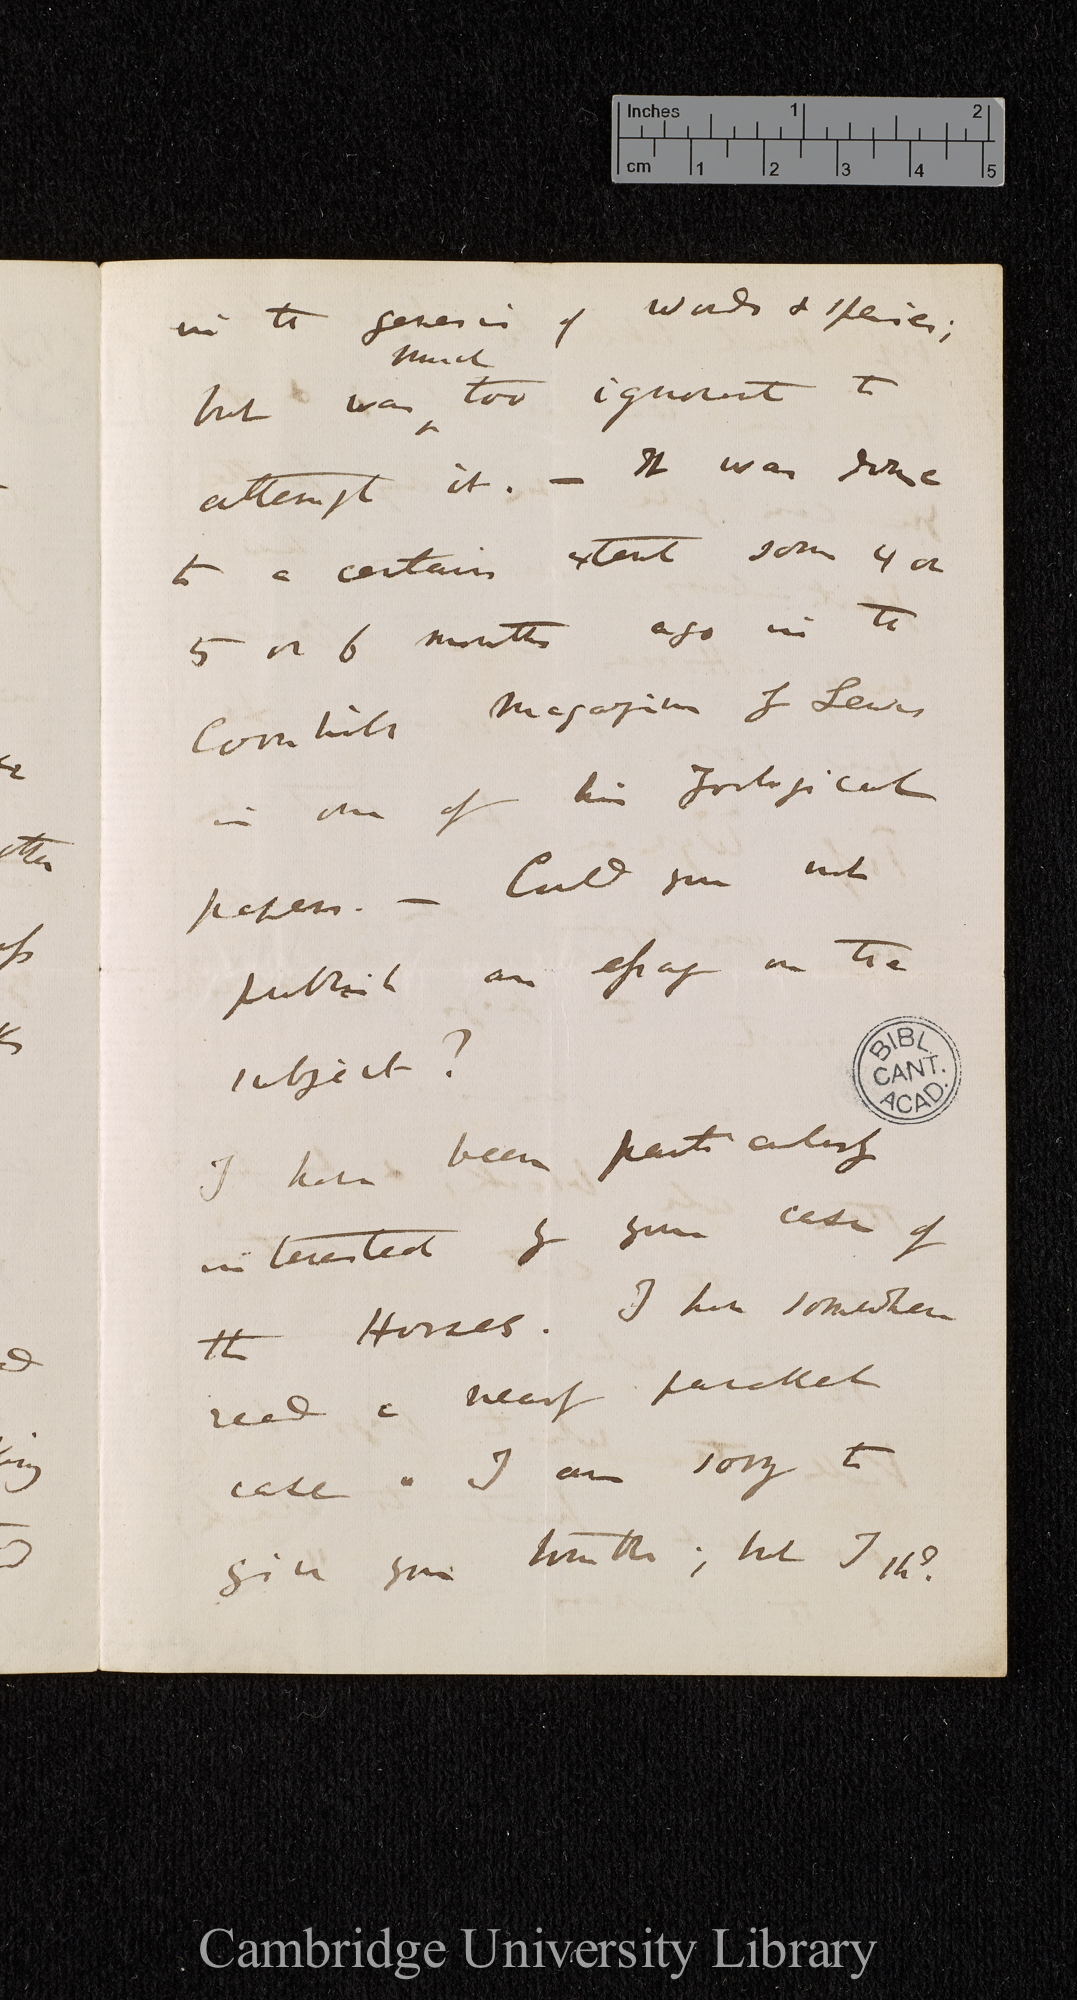 Inches 1 2
cm 1 2 3 4 5
in the genesis of words & species;
but was ^much too ignorant to
attempt it. — It was done
to a certain extent some 4 or
5 or 6 months ago in the
Cornhill Magazine by Lewes
in one of his Zoological
papers. — Could you not
publish an essay on the
subject?
I have been particularly
interested by your case of
the Horses. I have somewhere
read a nearly parallel
case. I am sorry to
give you trouble; but I shd.
BIBL.
CANT.
ACAD.
Cambridge University Library